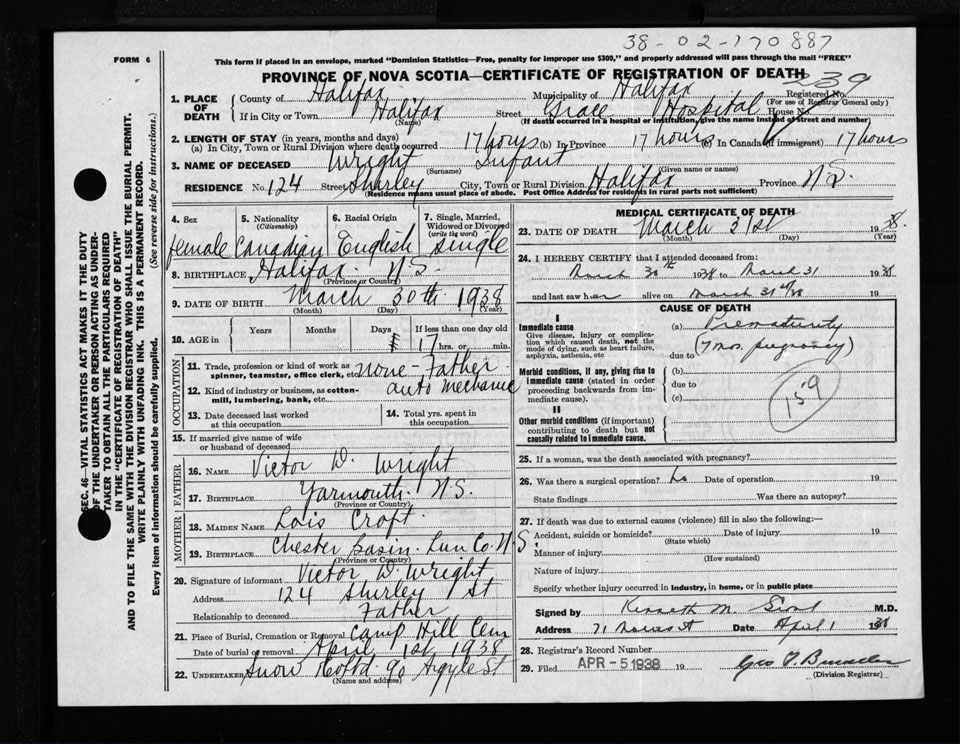 38-02-170887
FORM 6
This form if placed in an envelope, marked "Dominion Statistics—Free, penalty for improper use $300," and properly addressed will pass through the mail "FREE"
PROVINCE OF NOVA SCOTIA—CERTIFICATE OF REGISTRATION OF DEATH
239
1. PLACE OF DEATH County of Halifax Municipality of Halifax Registered No.
(For use of Registrar General only)
If in City or Town Halifax Street Grace Hospital House No.
(Name) (If death occurred in a hospital or institution, give the name instead of street and number)
2. LENGTH OF STAY (in years, months and days)
(a) In City, Town or Rural Division where death occurred 17 hours (b) In Province 17 hours (c) In Canada (if immigrant) 17 hours
3. NAME OF DECEASED Wright Infant
(Surname) (Given name or names)
RESIDENCE No. 124 Street Shirley City, Town or Rural Division Halifax Province N.S.
(Residence means usual place of abode. Post Office Address for residents in rural parts not sufficient)
4. Sex 5. Nationality 6. Racial Origin 7. Single, Married, Widowed or Divorced
(Citizenship) (write the word)
female Canadian English single
8. BIRTHPLACE Halifax N.S.
(Province or Country)
9. DATE OF BIRTH March 30th 1938
(Month) (Day) (Year)
10. AGE in Years Months Days If less than one day old
17 hrs. or min.
OCCUPATION
11. Trade, profession or kind of work as spinner, teamster, office clerk, etc. none - Father
12. Kind of industry or business, as cotton-mill, lumbering, bank, etc. auto mechanic
13. Date deceased last worked at this occupation
14. Total yrs. spent in this occupation
15. If married give name of wife or husband of deceased
FATHER
16. NAME Victor W. Wright
17. BIRTHPLACE Yarmouth N.S.
(Province or Country)
MOTHER
18. MAIDEN NAME Lois Croft
19. BIRTHPLACE Chester Basin Lun Co. N.S.
(Province or Country)
20. Signature of informant Victor W. Wright
Address 124 Shirley St
Relationship to deceased Father
21. Place of Burial, Cremation or Removal Camp Hill Cem
Date of burial or removal April 1st 1938
22. UNDERTAKER Snow Co Ltd 90 Argyle St
(Name and address)
MEDICAL CERTIFICATE OF DEATH
23. DATE OF DEATH March 31st 1938
(Month) (Day) (Year)
24. I HEREBY CERTIFY that I attended deceased from:
March 30th 1938 to March 31 1938
and last saw her alive on March 31st/38 19
CAUSE OF DEATH
I
Immediate cause
Give disease, injury or complication which caused death, not the mode of dying, such as heart failure, asphyxia, asthenia, etc
(a) Prematurity
due to (7 mos. pregnancy)
Morbid conditions, if any, giving rise to immediate cause (stated in order proceeding backwards from immediate cause).
(b)
due to
(c)
159
II
Other morbid conditions (if important) contributing to death but not causally related to immediate cause.
25. If a woman, was the death associated with pregnancy?
26. Was there a surgical operation? No Date of operation 19
State findings Was there an autopsy?
27. If death was due to external causes (violence) fill in also the following:—
Accident, suicide or homicide? Date of injury 19
(State which)
Manner of injury
(How sustained)
Nature of injury
Specify whether injury occurred in industry, in home, or in public place
Signed by Kenneth M. M.D.
Address 71 St Date April 1 1938
28. Registrar's Record Number
29. Filed APR - 5 1938 19
(Division Registrar)
SEC. 46—VITAL STATISTICS ACT MAKES IT THE DUTY
OF THE UNDERTAKER OR PERSON ACTING AS UNDER-
TAKER TO OBTAIN ALL THE PARTICULARS REQUIRED
IN THE "CERTIFICATE OF REGISTRATION OF DEATH"
AND TO FILE THE SAME WITH THE DIVISION REGISTRAR WHO SHALL ISSUE THE BURIAL PERMIT.
WRITE PLAINLY WITH UNFADING INK. THIS IS A PERMANENT RECORD.
Every item of information should be carefully supplied. (See reverse side for instructions.)